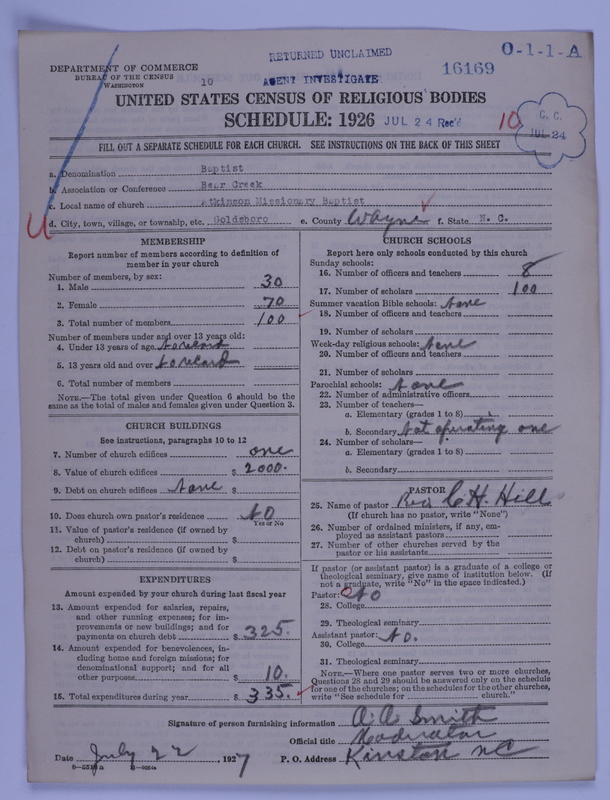 RETURNED UNCLAIMED
O-1-1-A
DEPARTMENT OF COMMERCE
BUREAU OF THE CENSUS
WASHINGTON
10
AGENT INVESTIGATE
16169
UNITED STATES CENSUS OF RELIGIOUS BODIES
SCHEDULE: 1926 JUL 24 Rec'd
10
C. C.
JUL 24
FILL OUT A SEPARATE SCHEDULE FOR EACH CHURCH. SEE INSTRUCTIONS ON THE BACK OF THIS SHEET
a. Denomination Baptist
b. Association or Conference Bear Creek
c. Local name of church Atkinson Missionary Baptist
d. City, town, village, or township, etc. Goldsboro e. County Wayne f. State N. C.
MEMBERSHIP
Report number of members according to definition of member in your church
Number of members, by sex:
1. Male 30
2. Female 70
3. Total number of members 100
Number of members under and over 13 years old:
4. Under 13 years of age no record
5. 13 years old and over no record
6. Total number of members
NOTE.—The total given under Question 6 should be the
same as the total of males and females given under Question 3.
CHURCH BUILDINGS
See instructions, paragraphs 10 to 12
7. Number of church edifices one
8. Value of church edifices $ 2000.
9. Debt on church edifices None $
10. Does church own pastor's residence No
Yes or No
11. Value of pastor's residence (if owned by
church) $
12. Debt on pastor's residence (if owned by
church) $
EXPENDITURES
Amount expended by your church during last fiscal year
13. Amount expended for salaries, repairs,
and other running expenses; for im-
provements or new buildings; and for
payments on church debt $ 325.
14. Amount expended for benevolences, in-
cluding home and foreign missions; for
denominational support; and for all
other purposes $ 10.
15. Total expenditures during year $ 335.
CHURCH SCHOOLS
Report here only schools conducted by this church
Sunday schools:
16. Number of officers and teachers 8
17. Number of scholars 100
Summer vacation Bible schools: None
18. Number of officers and teachers
19. Number of scholars
Week-day religious schools: None
20. Number of officers and teachers
21. Number of scholars
Parochial schools: None
22. Number of administrative officers
23. Number of teachers—
a. Elementary (grades 1 to 8)
b. Secondary Not operating one
24. Number of scholars—
a. Elementary (grades 1 to 8)
b. Secondary
PASTOR
25. Name of pastor Rev. C. H. Hill
(If church has no pastor, write "None")
26. Number of ordained ministers, if any, em-
ployed as assistant pastors
27. Number of other churches served by the
pastor or his assistants
If pastor (or assistant pastor) is a graduate of a college or
theological seminary, give name of institution below. (If
not a graduate, write "No" in the space indicated.)
Pastor: No
28. College
29. Theological seminary
Assistant pastor: No.
30. College
31. Theological seminary
NOTE.—Where one pastor serves two or more churches,
Questions 28 and 29 should be answered only on the schedule
for one of the churches; on the schedules for the other churches,
write "See schedule for church."
Signature of person furnishing information A. A. Smith
Official title Moderator
Date July 22, 1927 P. O. Address Kinston NC